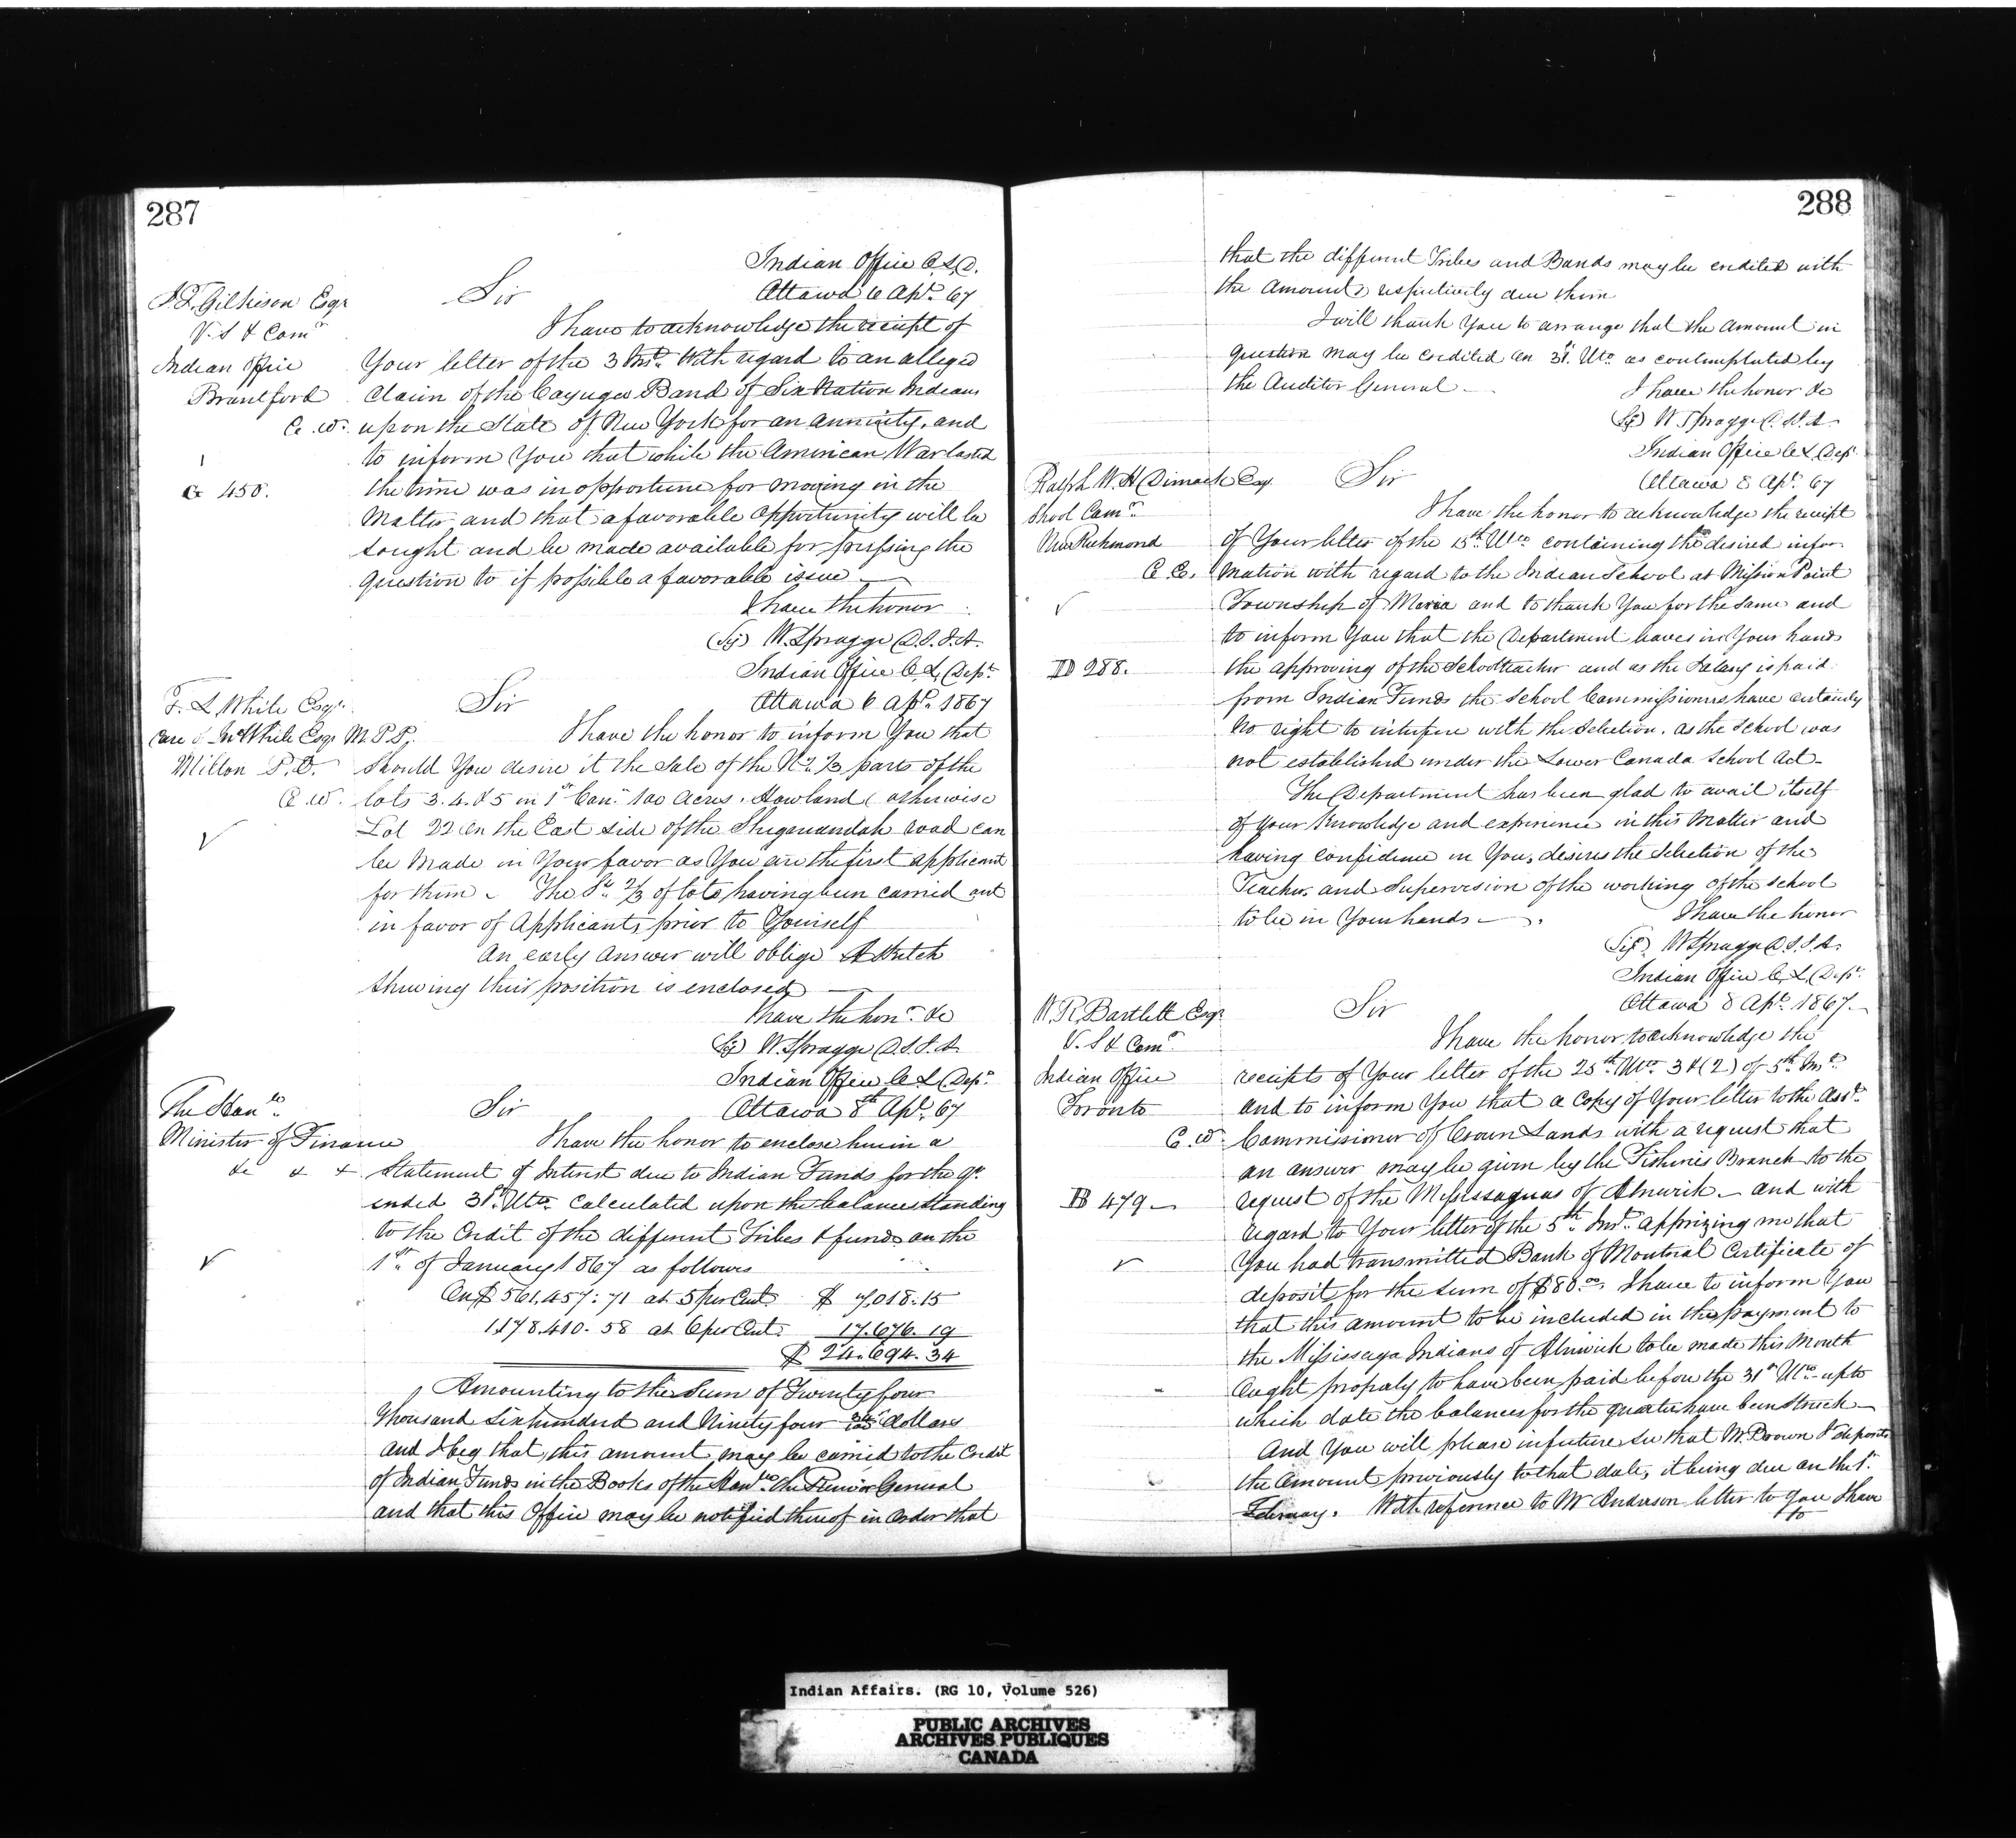 287
Indian Office C.L.D.
Ottawa 6 Apl. 67
J.T. Gilkison Esqr
V. S & Comr
Indian Office
Brantford
C. W.
G 458.
Sir
I have to acknowledge the receipt of
Your letter of the 3 Inst. With regard to an alleged
Claim of the Cayuga Band of Six Nation Indians
upon the State of New York for an annuity, and
to inform You that while the American War lasted
the time was inopportune for moving in the
Matter and that a favorable opportunity will be
sought and be made available for pressing the
question to if possible a favorable issue —
I have the honor
(Sg) W. Spragge D.S.I.A.
Indian Office C. L. Dept.
Ottawa 6 Apl. 1867
T. L White Esqr.
Care of Jno White Esqr M.P.P.
Milton P.O.
C. W.
Sir
I have the honor to inform You that
should You desire it the Sale of the N. 1/3 parts of the
lots 3. 4. & 5 in 1st Con. 100 Acres. Howland (otherwise
Lot 22 on the East side of the Shegewandah road can
be Made in Your favor as You are the first applicant
for them. The S. 2/3 of lots having been carried out
in favor of Applicants prior to Yourself
An early Answer will oblige A Sketch
shewing their position is enclosed —
I have the honr. &c
(Sg) W. Spragge D.S.I.A.
Indian Office C. L. Dept.
Ottawa 8th Apl. 67
The Honble
Minister of Finance
&c & &
Sir
I have the honor to enclose herein a
Statement of Interest due to Indian Funds for the qr.
ended 31st. Ulto. Calculated upon the balances standing
to the Credit of the different Tribes & funds on the
1st. of January 1867 as follows
On $561,457:71 at 5 per Cent $ 7,018.15
1.178.410.58 at 6 per Cent. 17.676.19
$ 24.694.34
Amounting to the Sum of Twenty four
thousand Six hundred and Ninety four 34/100 dollars
and I beg that this amount may be carried to the Credit
of Indian Funds in the Books of the Honble. the Receivor General
and that this Office may be notified thereof in order that
288
that the different Tribes and Bands may be credited with
the Amounts respectively due them
I will thank You to arrange that the amount in
question may be credited on 31st. Ulto as contemplated by
the Auditor General —
I have the honor &c
(Sg) W Spragge D.S.I.A.
Indian Office C L Dept
Ottawa 8 Apl. 67
Ralph W. H Dimock Esq
School Comr.
New Richmond
C. E.
D 288.
Sir
I have the honor to acknowledge the receipt
of Your letter of the 15th. Ulto containing the desired infor-
mation with regard to the Indian School at Mission Point
Township of Maria and to thank You for the same and
to inform You that the Department leaves in Your hands
the approving of the Schoolteacher and as the Salary is paid
from Indian Funds the School Commissioners have certainly
no right to interfere with the Selection, as the School was
not established under the Lower Canada School Act —
The Department has been glad to avail itself
of your Knowledge and experience in this Matter and
having confidence in You, desires the Selection of the
Teacher, and Supervision of the working of the School
to be in Your hands —
I have the honor
(Sg) W Spragge D.S.I.A.
Indian Office C. L. Dept.
Ottawa 8 Apl. 1867.
W. R. Bartlett Esqr
V. S & Comr
Indian Office
Toronto
C. W.
B 479 —
Sir
I have the honor to acknowledge the
receipts of Your letter of the 25th Ulto. 3 & (2) of 5th Inst
and to inform You that a Copy of Your letter to the Asst.
Commissioner of Crown Lands with a request that
an answer may be given by the Fisheries Branch to the
request of the Mississaguas of Alnwick — and with
regard to Your letter of the 5th. Inst. apprizing me that
You had transmitted Bank of Montreal Certificate of
deposit for the Sum of $80.00, I have to inform You
that this amount to be included in the payment to
the Mississaga Indians of Alnwick to be made this Month
Ought properly to have been paid before the 31st Ulto up to
which date the balances for the quarter have been Struck —
And You will please in future see that Mr. Brown deposits
the Amount previously to that date, it being due on the 1st.
February. With reference to Mr Anderson letter to You I have
to
Indian Affairs. (RG 10, Volume 526)
PUBLIC ARCHIVES
ARCHIVES PUBLIQUES
CANADA